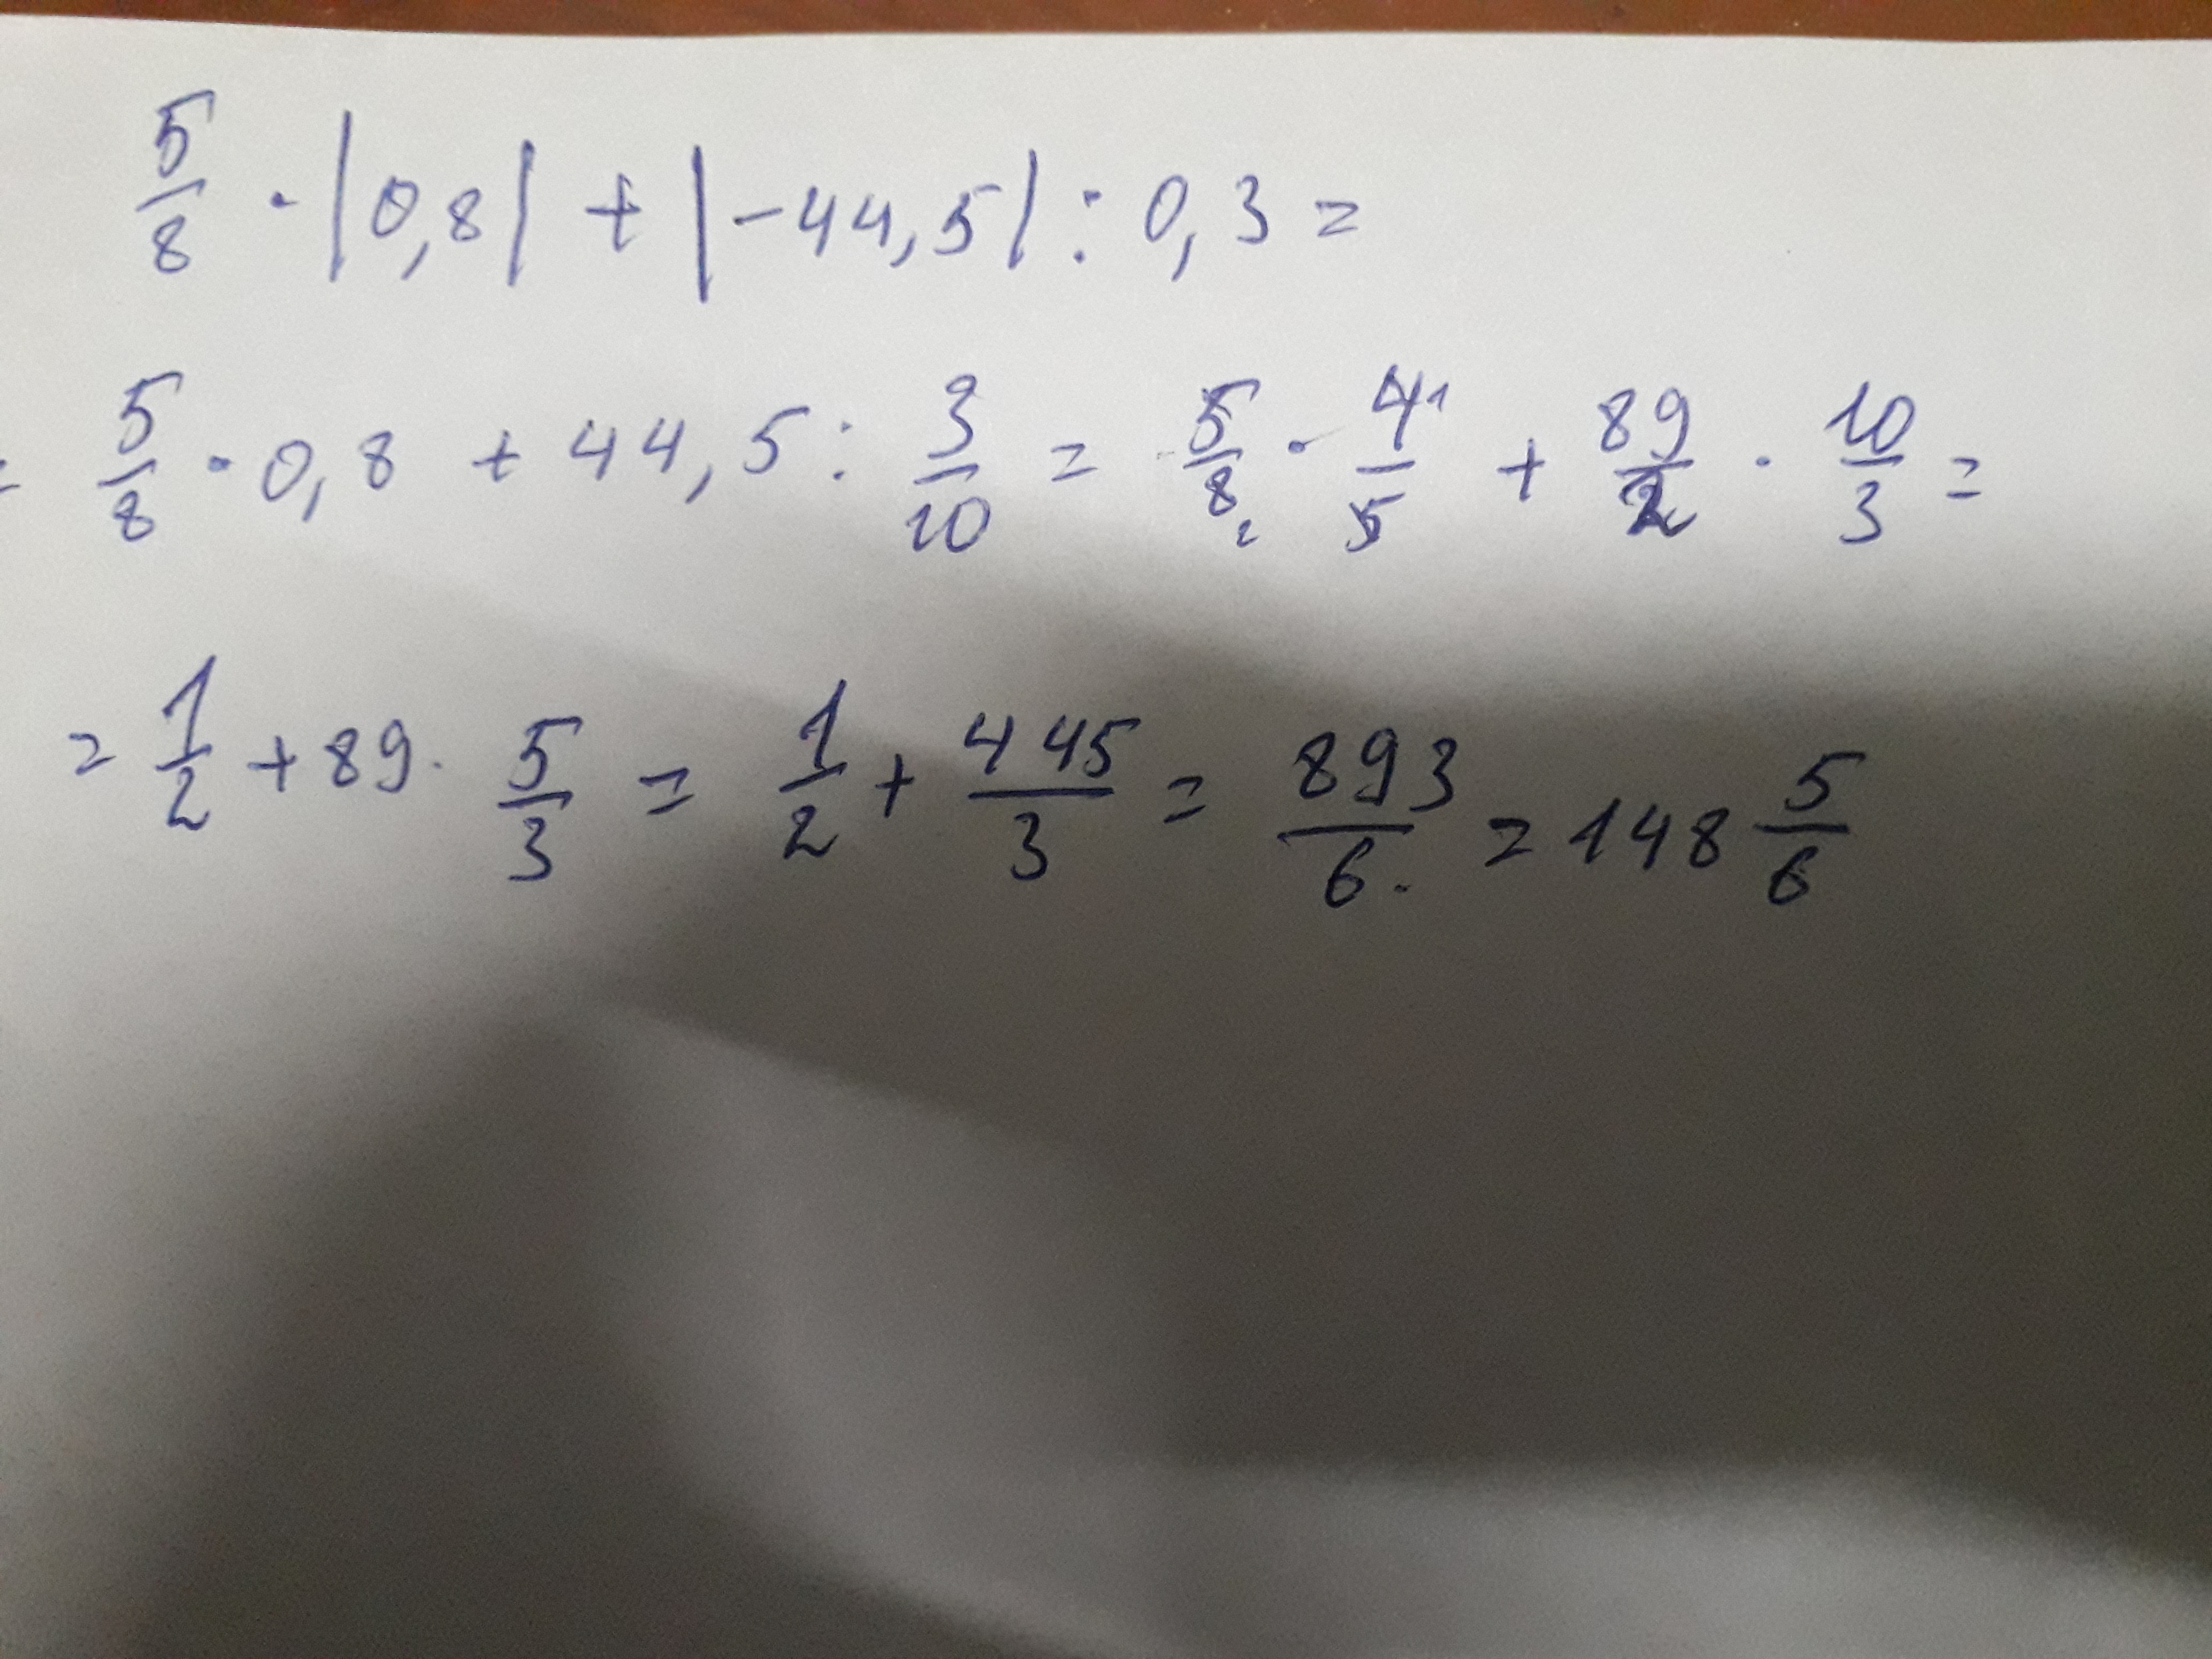 5/8 · |0,8| + |-44,5| : 0,3 =
= 5/8 · 0,8 + 44,5 : 3/10 = 5/8₂ · 4¹/5 + 89/2 · 10/3 =
= 1/2 + 89 · 5/3 = 1/2 + 445/3 = 893/6. = 148 5/6